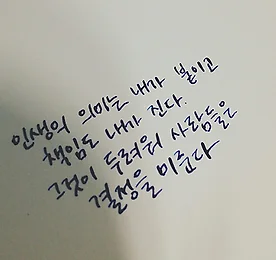 인생의 의미는 내가 붙이고
책임도 내가 진다.
그것이 두려워 사람들은
결정을 미룬다